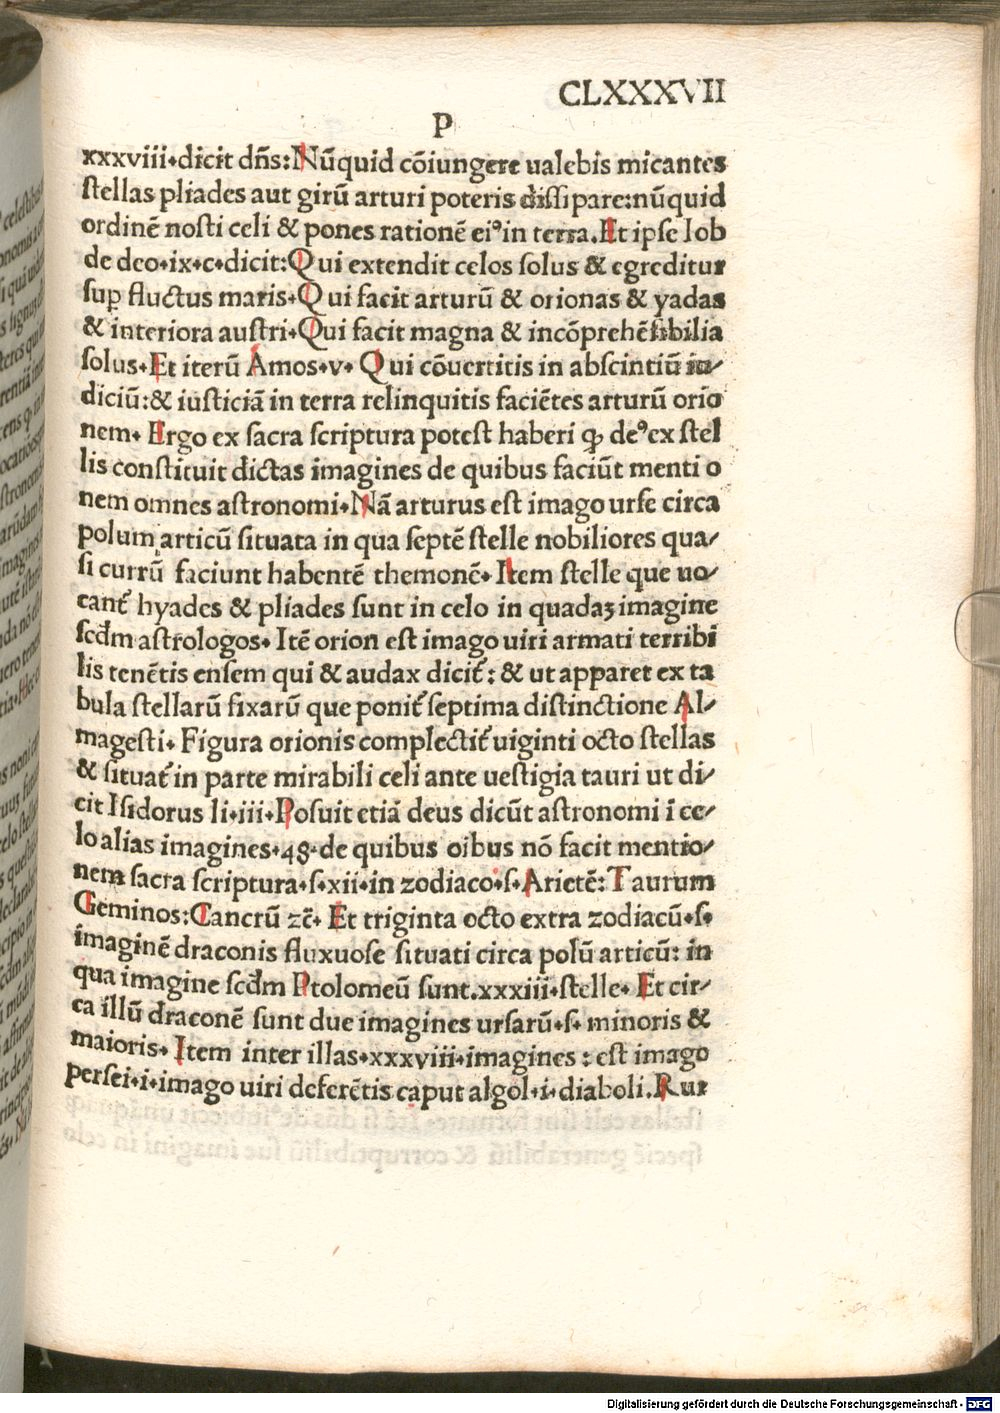 CLXXXVII
P
xxxviii·dicit dn̄s:Nūquid cōiungere ualebis micantes
stellas pliades aut girū arturi poteris dissipare:nūquid
ordinē nosti celi & pones rationē eiꝰ in terra.Et ipse Iob
de deo·ix·c·dicit:Qui extendit celos solus & egreditur
suꝑ fluctus maris·Qui facit arturū & orionas & yadas
& interiora austri·Qui facit magna & incōprehēsibilia
solus·Et iterū Amos·v· Qui cōuertitis in abscintiū iu/
diciū:& iusticiā in terra relinquitis faciētes arturū orio
nem· Ergo ex sacra scriptura potest haberi ꝙ deꝰ ex stel
lis constituit dictas imagines de quibus faciūt mentio
nem omnes astronomi·Nā arturus est imago urse circa
polum articū situata in qua septē stelle nobiliores qua/
si currū faciunt habentē themonē· Item stelle que uo/
cant᷑ hyades & pliades sunt in celo in quadaꝫ imagine
scd̄m astrologos· Itē orion est imago uiri armati terribi
lis tenētis ensem qui & audax dicit᷑: & ut apparet ex ta
bula stellarū fixarū que ponit᷑ septima distinctione Al/
magesti· Figura orionis complectit᷑ uiginti octo stellas
& situat᷑ in parte mirabili celi ante uestigia tauri ut di/
cit Isidorus li·iii·Posuit etiā deus dicūt astronomi ī ce/
lo alias imagines·48·de quibus oībus nō facit mentio/
nem sacra scriptura·s·xii·in zodiaco·s·Arietē:Taurum
Geminos:Cancrū zc̄· Et triginta octo extra zodiacū·s·
imaginē draconis fluxuose situati circa polū articū: in
qua imagine scd̄m Ptolomeū sunt.xxxiii·stelle· Et cir/
ca illū draconē sunt due imagines ursarū·s· minoris &
maioris· Item inter illas·xxxviii·imagines : est imago
persei·i·imago uiri deferētis caput algol·i·diaboli.Rur
Digitalisierung gefördert durch die Deutsche Forschungsgemeinschaft - DFG